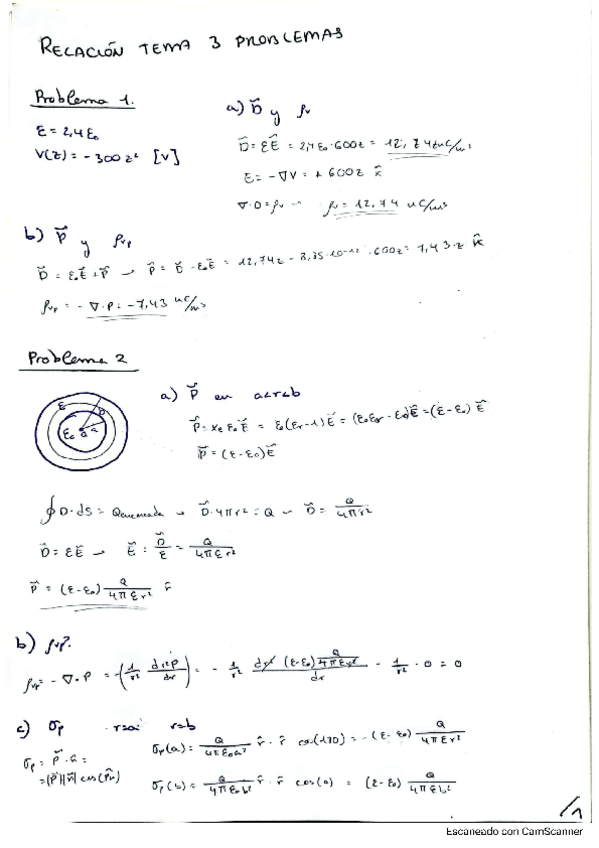 RELACIÓN TEMA 3 PROBLEMAS
Problema 1.
ε = 2,4 ε₀
V(z) = - 300 z² [V]
a) D⃗ y ρv
D⃗ = εE⃗ = 2,4 ε₀ · 600z = 12,74z nC/m²
E = -∇V = + 600z k̂
∇·D = ρv → ρv = 12,74 nC/m³
b) P⃗ y ρvp
D⃗ = ε₀E⃗ + P⃗ → P⃗ = D⃗ - ε₀E⃗ = 12,74z - 8,85·10⁻¹² · 600z = 7,43·z k̂
ρvp = - ∇·P = -7,43 nC/m³
Problema 2
ε
b
ε₀ Q a
a) P⃗ en a<r<b
P⃗ = χe ε₀ E⃗ = ε₀(εr-1)E⃗ = (ε₀εr - ε₀)E⃗ = (ε-ε₀) E⃗
P⃗ = (ε-ε₀)E⃗
∮ D·ds = Qencerrada → D⃗·4πr² = Q → D⃗ = Q/4πr²
D⃗ = εE⃗ → E⃗ = D⃗/ε = Q/4πεr²
P⃗ = (ε-ε₀) Q/4πεr² r̂
b) ρvp?
ρvp = -∇·P = -(1/r² dr²P/dr) = - 1/r² dr² (ε-ε₀) Q/4πεr² /dr - 1/r² · 0 = 0
c) σp r=a r=b
σp = P⃗·n̂ =
= |P⃗||n⃗| cos(
σp(a) = Q/4πε₀a² r̂ · r̂ cos(180) = -(ε-ε₀) Q/4πεr²
σp(b) = Q/4πε₀b² r̂ · r̂ cos(0) = (ε-ε₀) Q/4πεb²
/1
Escaneado con CamScanner